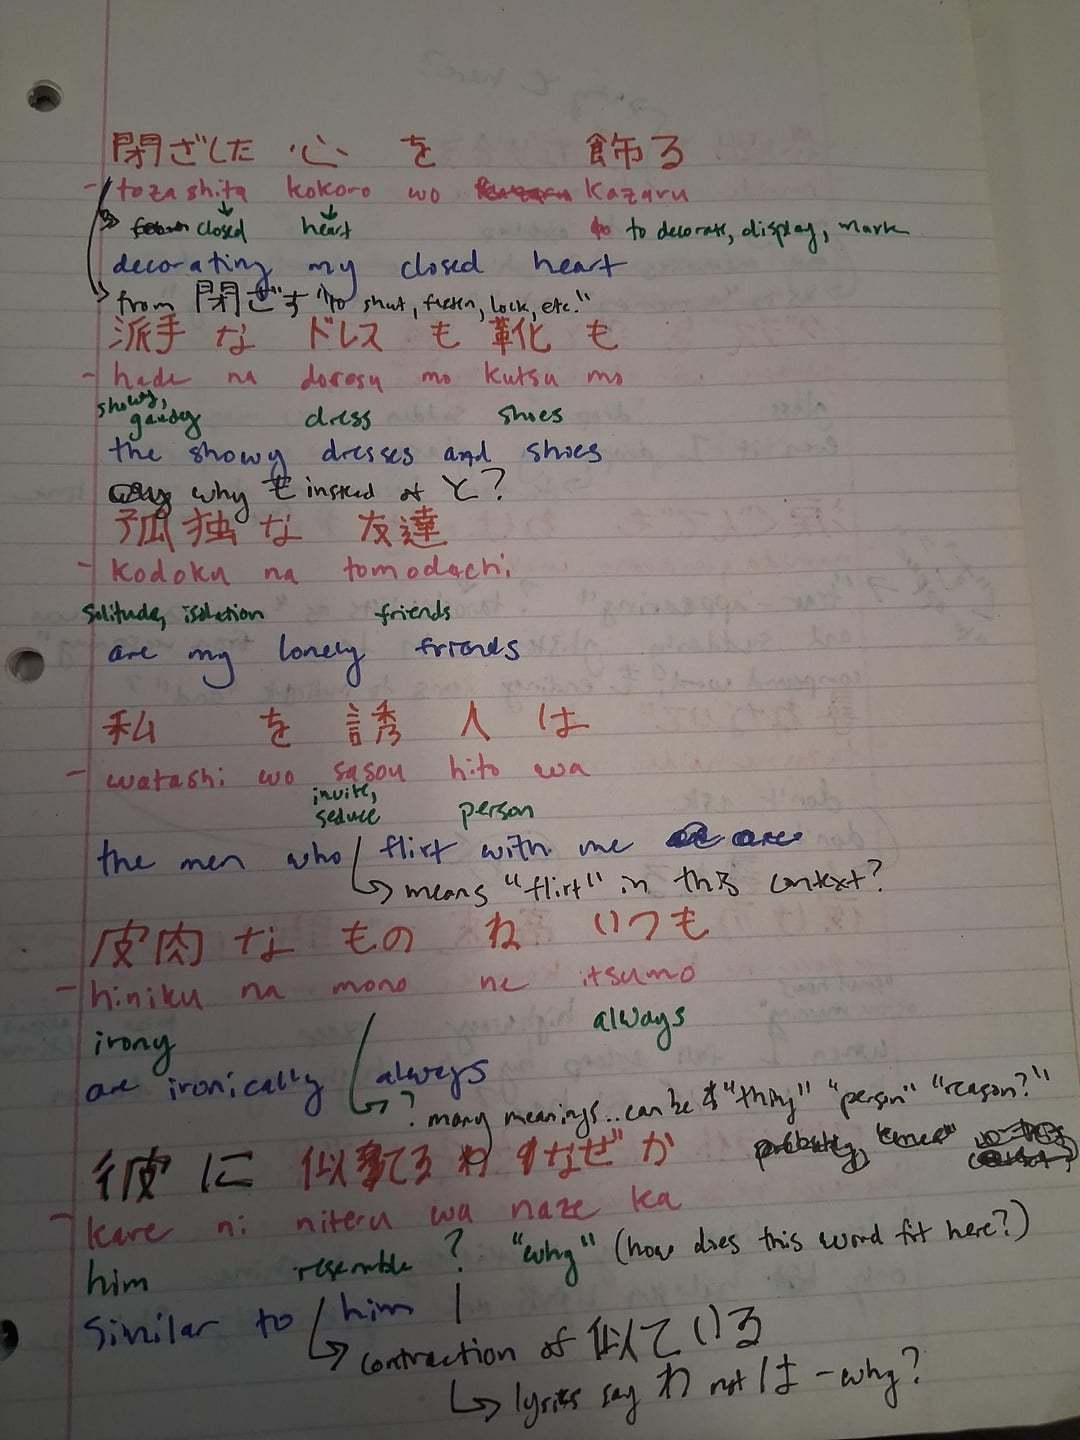 閉ざした 心 を 飾る
- tozashita kokoro wo kazaru
closed heart to decorate, display, mark
decorating my closed heart
from 閉ざす "to shut, fasten, lock, etc."
派手 な ドレス も 靴 も
- hade na doresu mo kutsu mo
showy, gaudy dress shoes
the showy dresses and shoes
why も instead of と?
孤独 な 友達
- kodoku na tomodachi
solitude, isolation friends
are my lonely friends
私 を 誘 人 は
- watashi wo sasou hito wa
invite, seduce person
the men who flirt with me
means "flirt" in this context?
皮肉 な もの ね いつも
- hiniku na mono ne itsumo
irony always
are ironically always
? many meanings.. can be "thing" "person" "reason?"
彼 に 似てる わ なぜ か
- kare ni niteru wa naze ka
him resemble ? "why" (how does this word fit here?)
similar to him
contraction of 似ている
lyrics say わ not は - why?